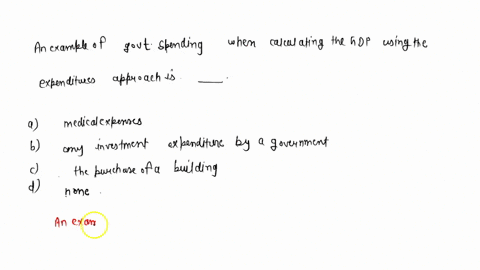 An example of govt. spending when calculating the GDP using the
expenditures approach is ____.
a) medical expenses
b) any investment expenditure by a government
c) the purchase of a building
d) none.
An exam